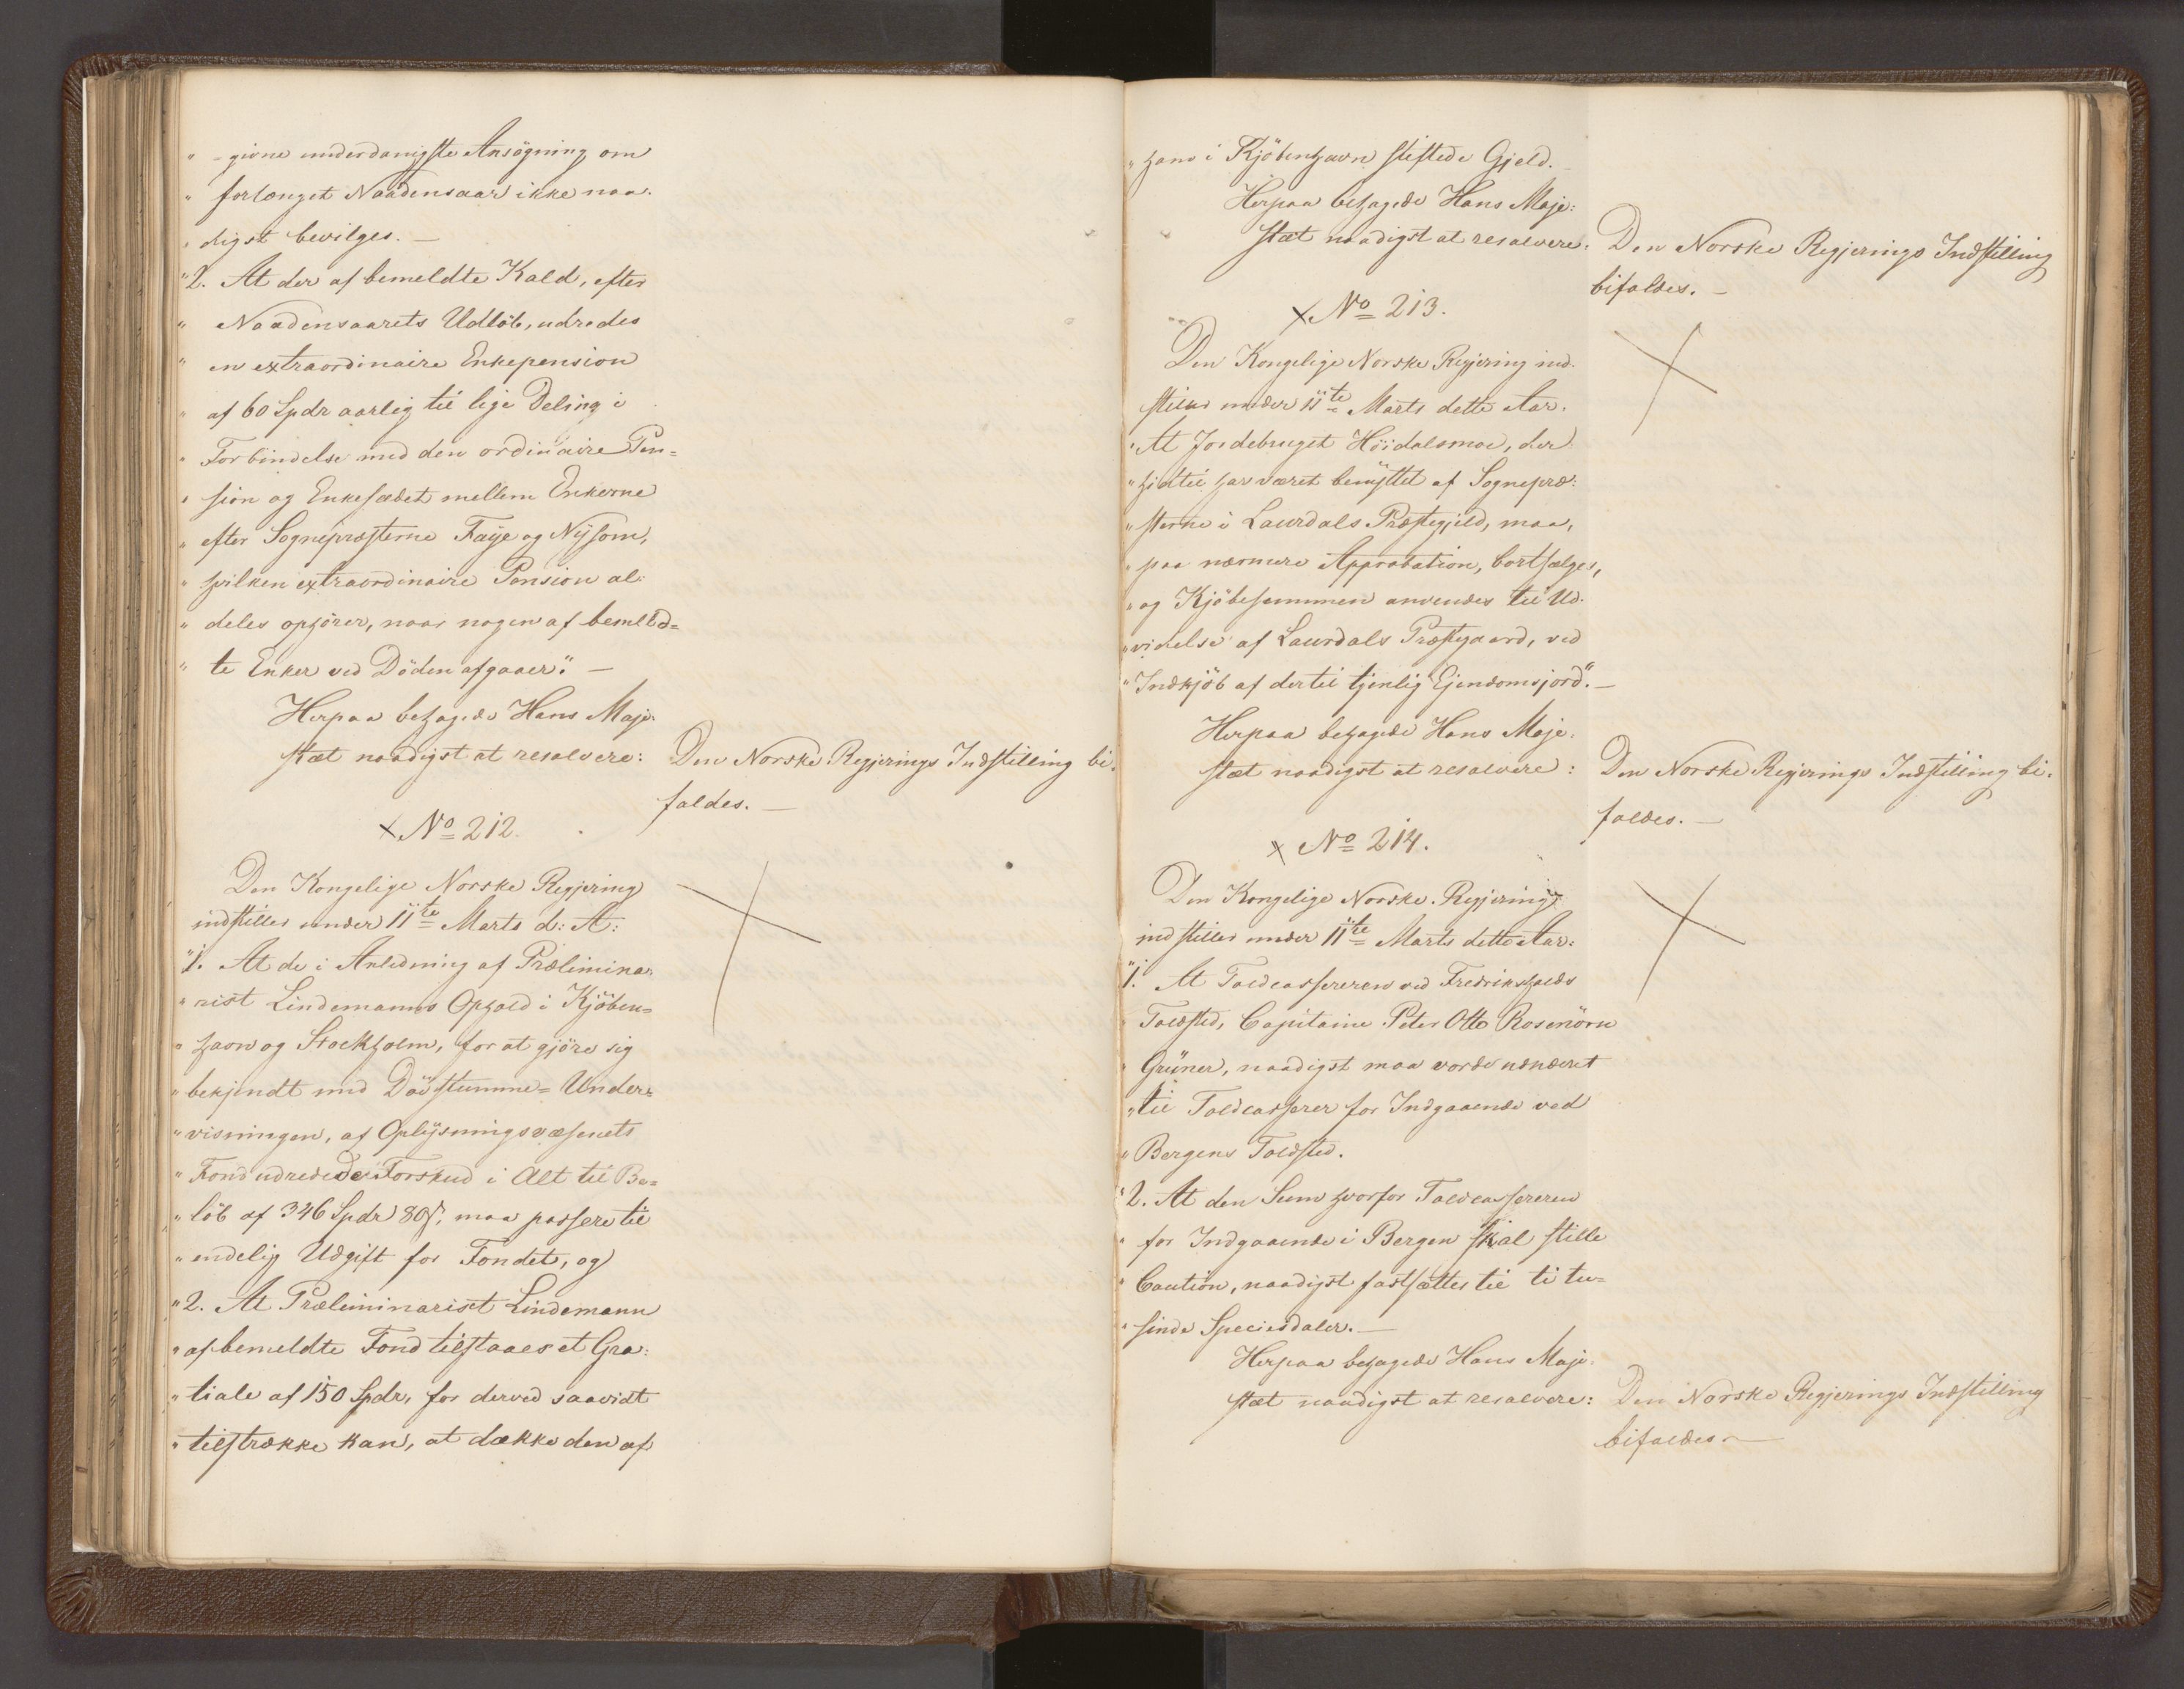 " -givne underdanigste Ansögning om
" forlænget Naadensaar ikke naa-
" digst bevilges. —
"2. At der af bemeldte Kald, efter
" Naadensaarets Udlöb, udredes
" en extraordinaire Enkepension
" af 60 Spdr aarlig til lige Deling i
" Forbindelse med den ordinaire Pen=
" sion og Enkesædet mellem Enkerne
" efter Sognepræsterne Faye og Nysom,
" hvilken extraordinaire Pension al-
" deles ophörer, naar nogen af bemeld=
" te Enker ved Döden afgaaer". —
Herpaa behagede Hans Maje-
stæt naadigst at resolvere: Den Norske Regjerings Indstilling bi-
faldes. —
x No 212.
Den Kongelige Norske Regjering
indstiller under 11te Marts d: A:
"1. At de i Anledning af Prælimina-
" rist Lindemanns Ophold i Kjöben=
" havn og Stockholm, for at gjöre sig
" bekjendt med Dövstumme= Under=
" visningen, af Oplysningsvæsenets
" Fond udredede Forskud i Alt til Be=
" löb af 346 Spdr 80 s, maa passere til
" endelig Udgift for Fondet, og
"2. At Præliminarist Lindemann
" af bemeldte Fond tilstaaes et Gra-
" tiale af 150 Spdr, for derved saavidt
" tilstrække kan, at dække den af
" ham i Kjöbenhavn stiftede Gjeld. —
Herpaa behagede Hans Maje-
stæt naadigst at resolvere: Den Norske Regjerings Indstilling
bifaldes. —
x No 213.
Den Kongelige Norske Regjering ind-
stiller under 11te Marts dette Aar.
" At Jordebruget Höidalsmoe, der
" hidtil har været benyttet af Sognepræ-
" sterne i Laurdals Præstegjeld, maa,
" paa nærmere Approbation, bortsælges,
" og Kjöbesummen anvendes til Ud-
" videlse af Laurdals Præstegaard, ved
" Indkjöb af dertil tjenlig Ejendomsjord". —
Herpaa behagede Hans Maje-
stæt naadigst at resolvere: Den Norske Regjerings Indstilling bi-
faldes. —
x No 214.
Den Kongelige Norske Regjering
indstiller under 11te Marts dette Aar:
"1. At Toldcassereren ved Fredrikshalds
" Toldsted, Capitaine Peter Otto Rosenörn
" Grüner, naadigst maa vorde udnævnt
" til Toldcasserer for Indgaaende ved
" Bergens Toldsted.
"2. At den Sum hvorfor Toldcassereren
" for Indgaaende i Bergen skal stille
" Caution, naadigst fastsættes til ti tu=
" sinde Speciesdaler. —
Herpaa behagede Hans Maje-
stæt naadigst at resolvere: Den Norske Regjerings Indstilling
bifaldes —